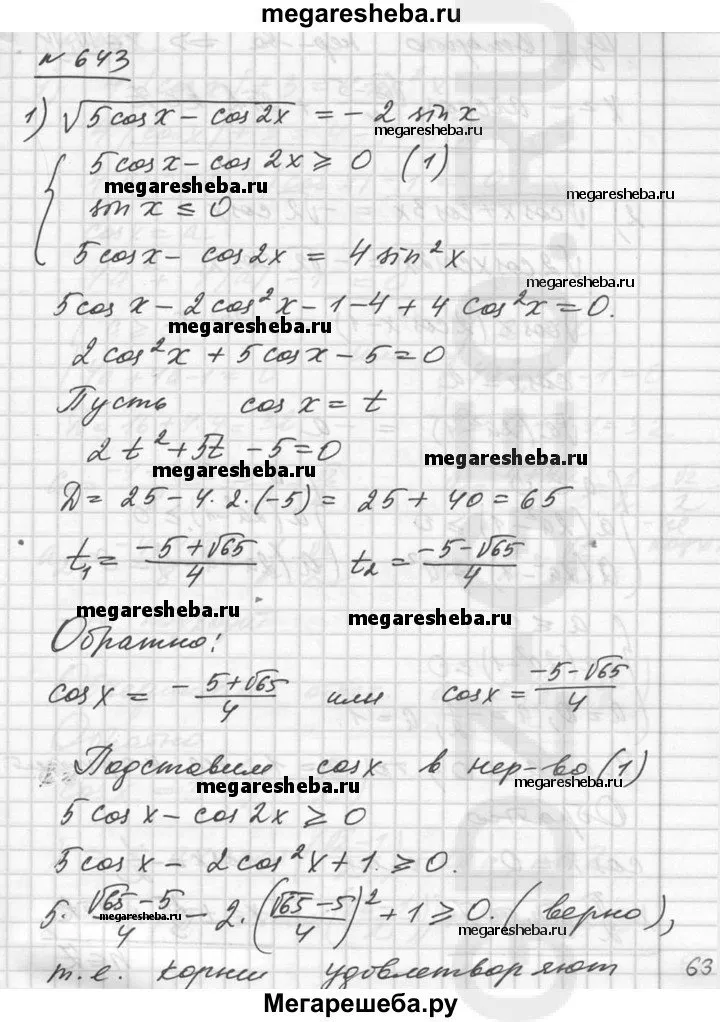 megaresheba.ru
№ 643
1) √(5cosx − cos2x) = − 2 sinx
megaresheba.ru
5cosx − cos 2x ⩾ 0 (1)
megaresheba.ru
megaresheba.ru
sin x ≤ 0
5cosx − cos2x = 4 sin²x
megaresheba.ru
5cos x − 2cos²x − 1 − 4 + 4 cos²x = 0.
megaresheba.ru
2cos²x + 5cosx − 5 = 0
Пусть cos x = t
2t² + 5t − 5 = 0
megaresheba.ru
megaresheba.ru
D = 25 − 4·2·(−5) = 25 + 40 = 65
t₁ = (−5+√65)/4 t₂ = (−5−√65)/4
megaresheba.ru
megaresheba.ru
Обратно:
cosx = − (5+√65)/4 или cosx = (−5−√65)/4
Подставим cosx в нер-во (1)
megaresheba.ru
megaresheba.ru
5cos x − cos 2x ⩾ 0
5cosx − 2cos²x + 1 ⩾ 0.
5·(√65−5)/4 − 2·((√65−5)/4)² + 1 ⩾ 0. (верно),
megaresheba.ru
megaresheba.ru
т.е. корни удовлетворяют 63
Мегарешеба.ру